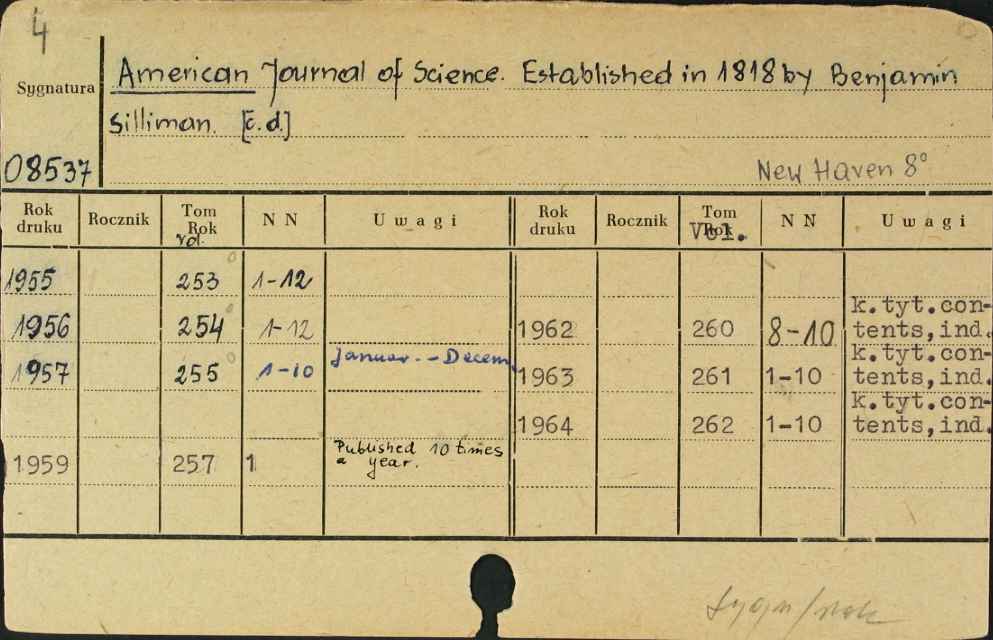 4
Sygnatura
American Journal of Science. Established in 1818 by Benjamin
Silliman. [c.d.]
08537
New Haven 8°
Rok druku Rocznik Tom Rok vol. N N Uwagi Rok druku Rocznik Tom Rok Vol. N N Uwagi
1955 253 1-12
1956 254 1-12 1962 260 8-10 k.tyt.con-
tents,ind.
1957 255 1-10 Januar. - Decem 1963 261 1-10 k.tyt.con-
tents,ind.
1964 262 1-10 k.tyt.con-
tents,ind.
1959 257 1 Published 10 times
a year.